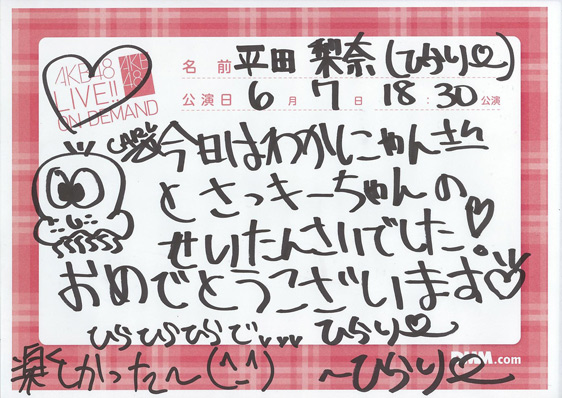 AKB48
LIVE!!
ON DEMAND
AKB
48
名 前 平田 梨奈(ひらり♡)
公演日 6 月 7 日 18:30 公演
今日はわかにゃんさん
とさっきーちゃんの
せいたんさいでした♡
おめでとうございます♡
ひらひらひらで、、、 ひらり♡
楽しかったー(^-^) 〜ひらり♡
DMM.com